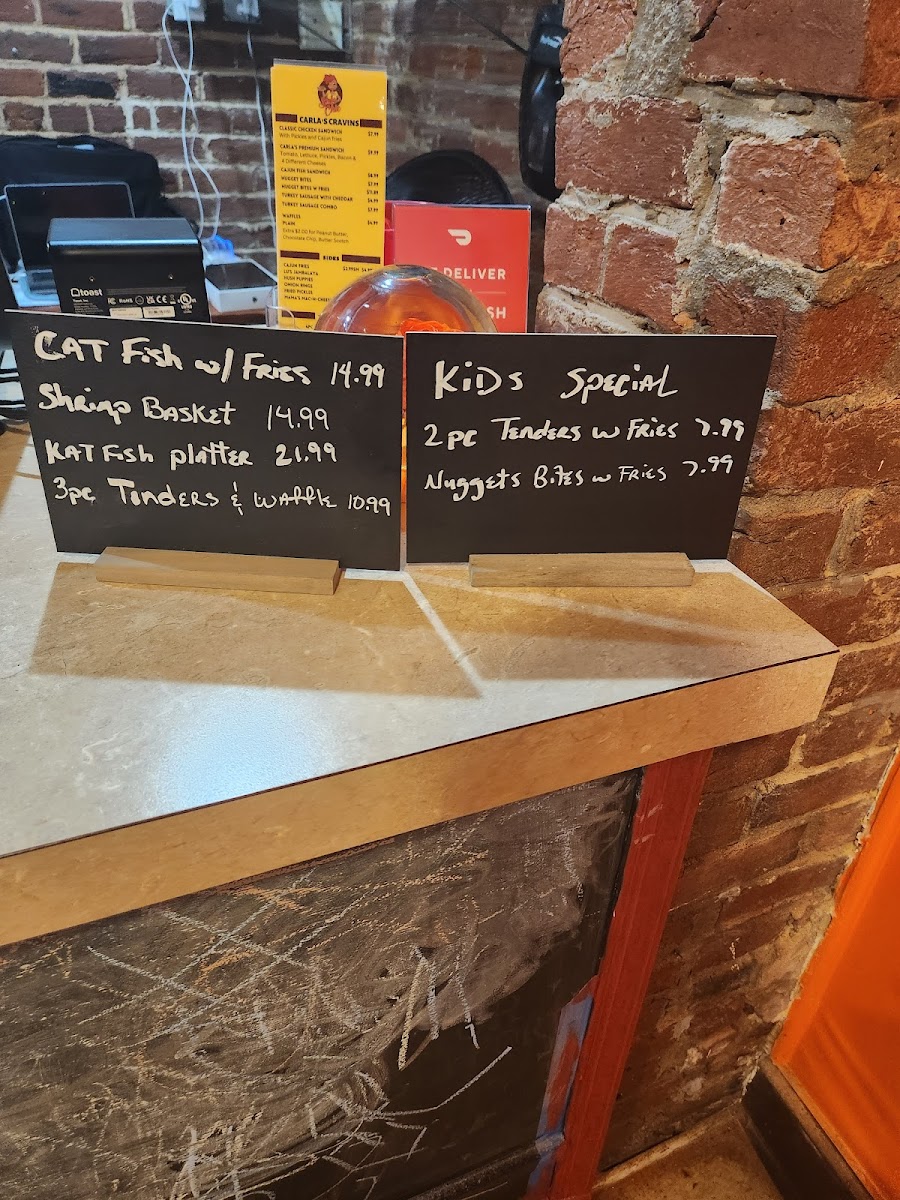 CARLA'S CRAVINS
CLASSIC CHICKEN SANDWICH $7.99
With Pickles and Cajun Fries
CARLA'S PREMIUM SANDWICH $9.99
Tomato, Lettuce, Pickles, Bacon &
4 Different Cheeses
CAJUN FISH SANDWICH $8.99
NUGGET BITES $7.99
NUGGET BITES W FRIES $11.89
TURKEY SAUSAGE WITH CHEDDAR $4.99
TURKEY SAUSAGE COMBO $7.99
WAFFLES
PLAIN $4.99
Extra $2.00 for Peanut Butter,
Chocolate Chip, Butter Scotch
SIDES
CAJUN FRIES
LU'S JAMBALAYA
HUSH PUPPIES
ONION RINGS
FRIED PICKLES
MAMA'S MAC-N-CHEE
DELIVER
SH
toast
Toast, Inc.
RoHS
CAT Fish w/ Fries 14.99
Shrimp Basket 14.99
KAT Fish platter 21.99
3pc Tenders & Waffle 10.99
KiDs Special
2 pc Tenders w Fries 7.99
Nuggets Bites w Fries 7.99